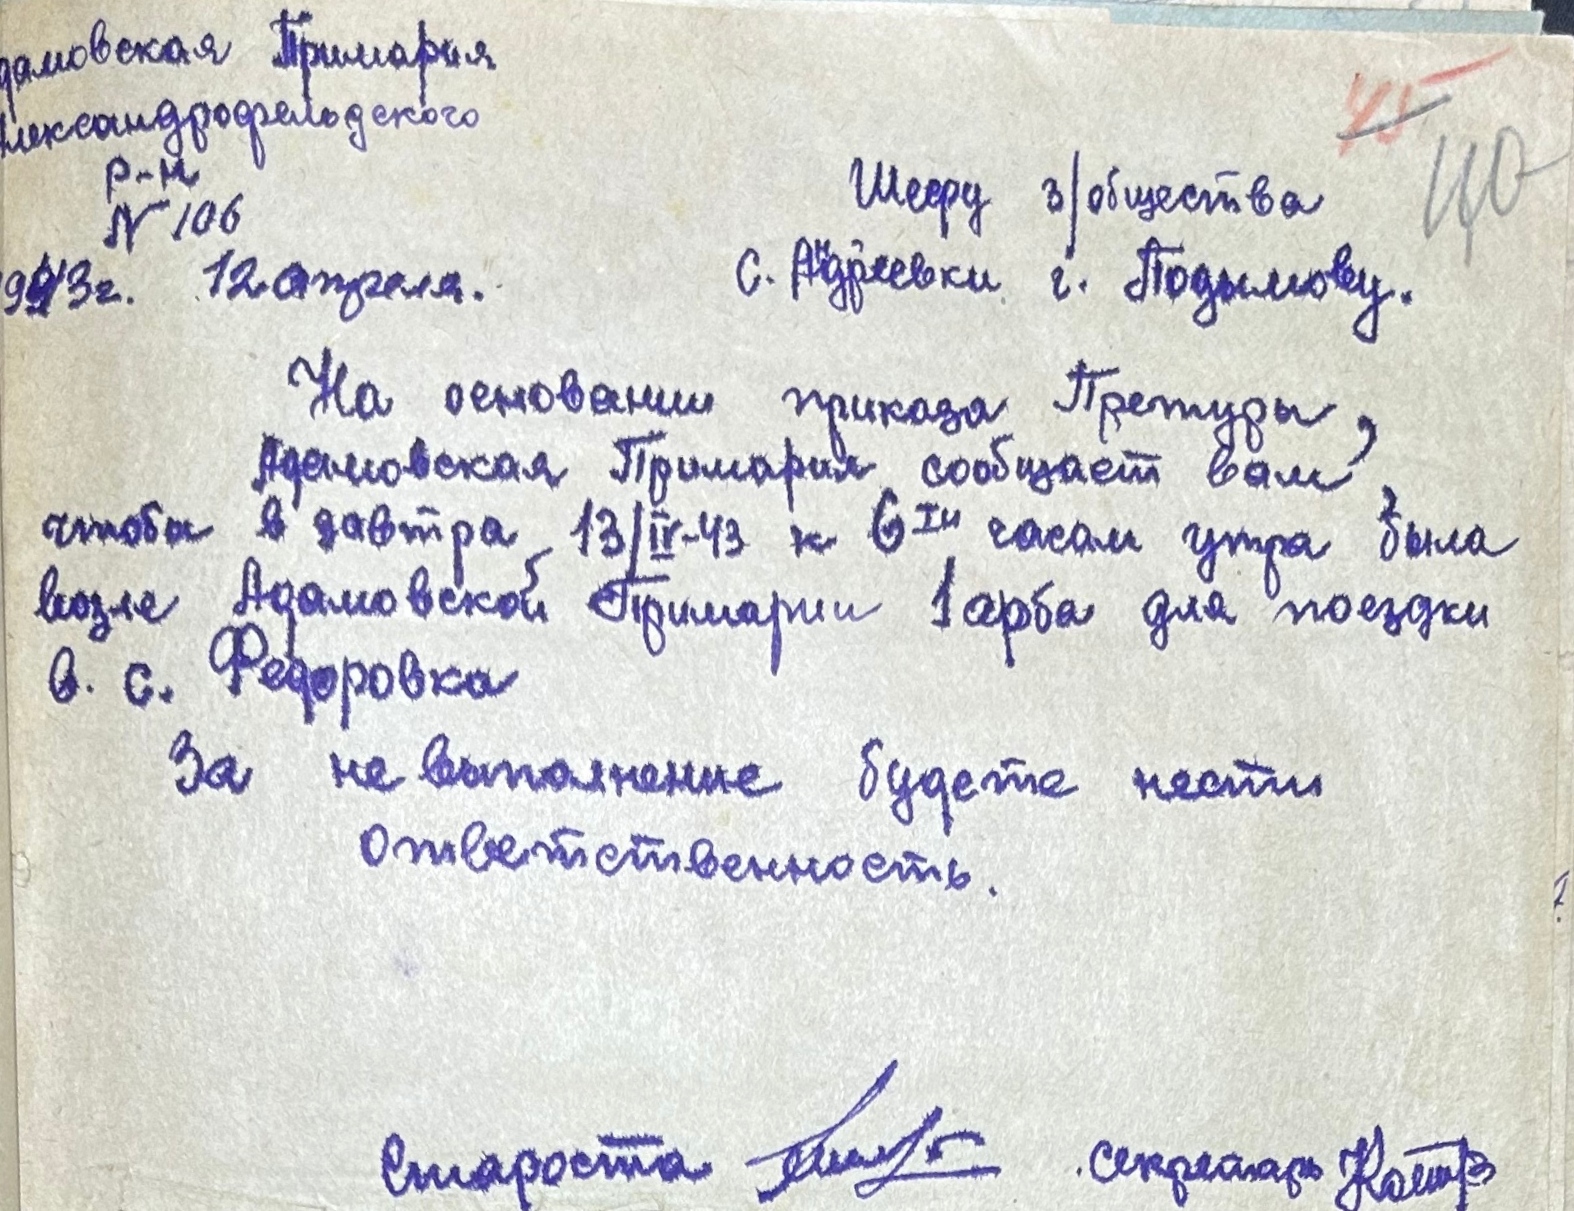 дамовская Примария
лександрофельдского
р-н
N 106
1943г. 12 апреля.
45
40
Шефу з/общества
с. Андреевки г. Подымову.
На основании приказа Претуры,
Адамовская Примария сообщает вам,
чтобы в завтра 13/IV-43 к 6 ти часам утра была
возле Адамовской Примарии 1 арба для поездки
в. с. Федоровка
За не выполнение будете нести
ответственность.
Староста
секретарь